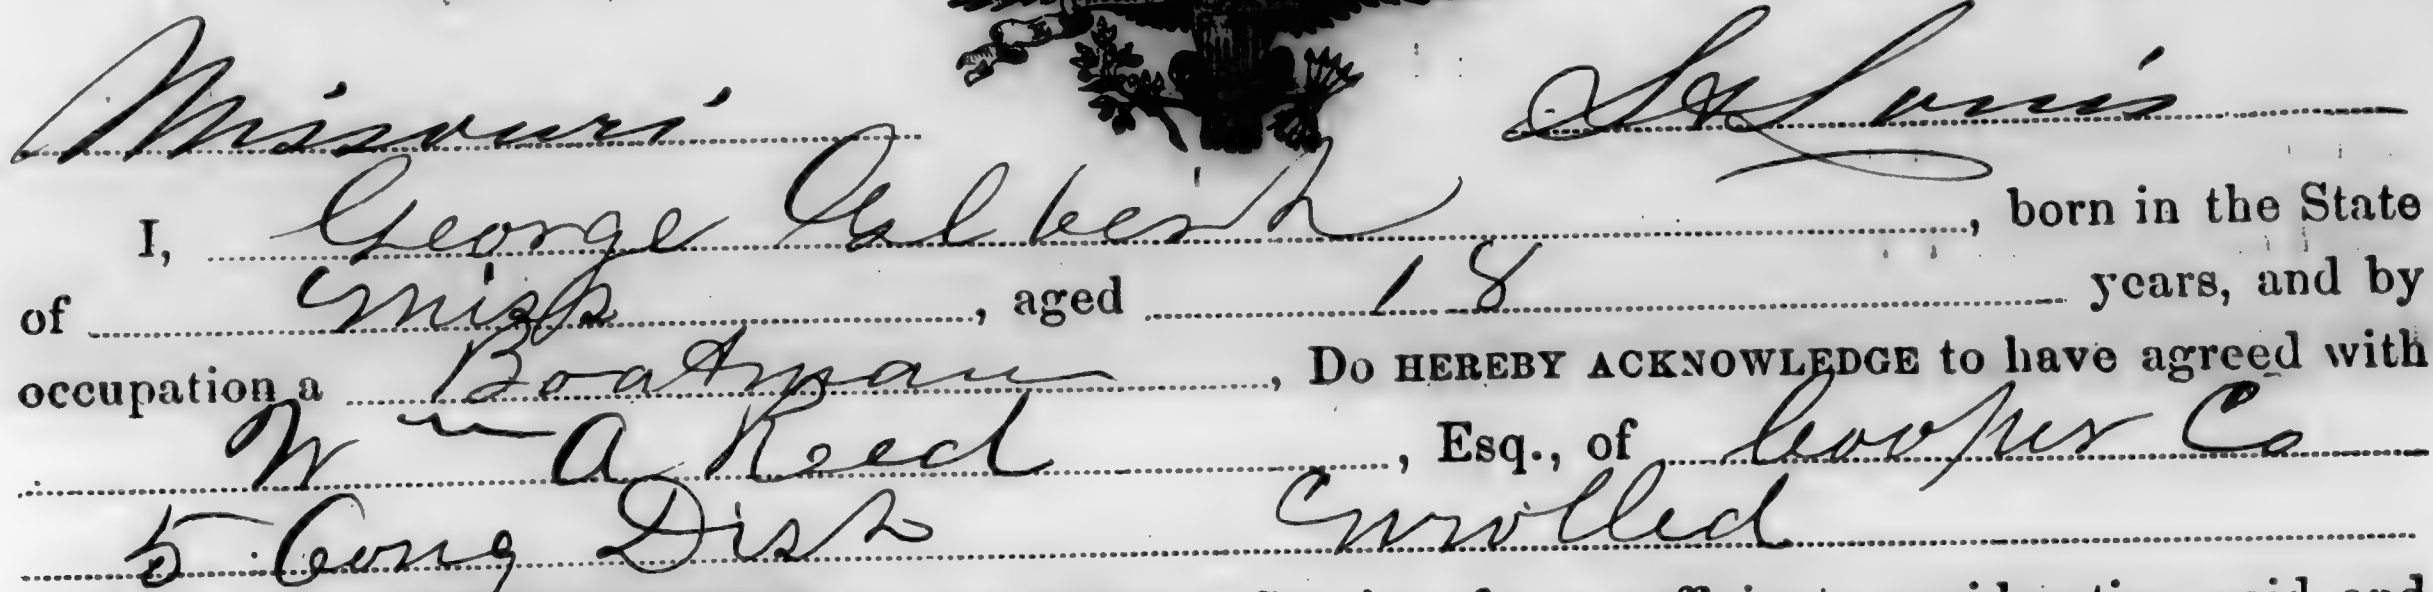 Missouri St Louis
I, George Gilbert, born in the State
of Miss, aged 18 years, and by
occupation a Boatman, Do HEREBY ACKNOWLEDGE to have agreed with
Wm A Reed, Esq., of Cooper Co
5 Cong Dist Enrolled